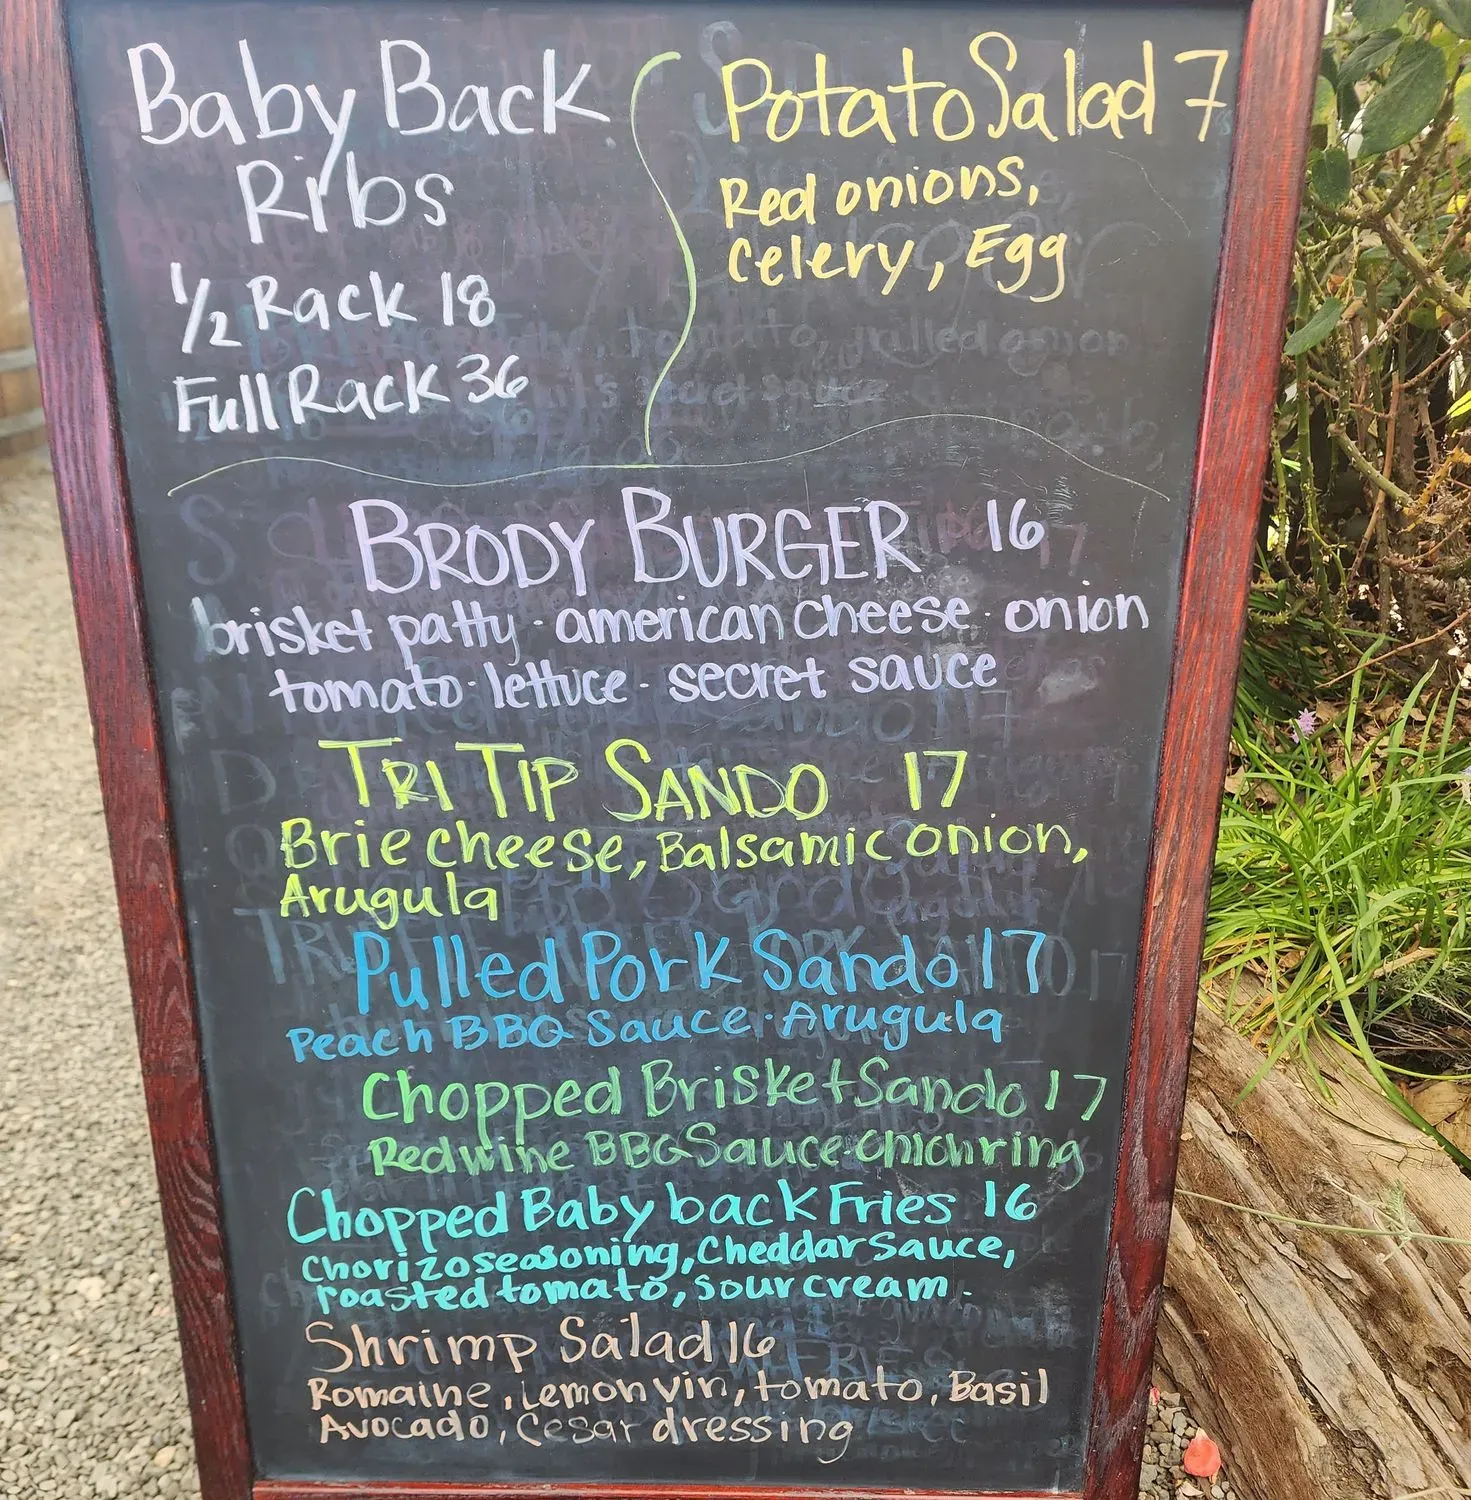 Baby Back
Ribs
1/2 Rack 18
Full Rack 36
Potato Salad 7
Red onions,
Celery, Egg
BRODY BURGER 16
brisket patty · american cheese · onion
tomato · lettuce · secret sauce
TRI TIP SANDO 17
Brie cheese, Balsamic onion,
Arugula
Pulled Pork Sando 17
Peach BBQ Sauce · Arugula
Chopped Brisket Sando 17
Redwine BBQ Sauce · onion ring
Chopped Baby back Fries 16
Chorizo seasoning, Cheddar Sauce,
roasted tomato, sour cream.
Shrimp Salad 16
Romaine, Lemon vin, tomato, Basil
Avocado, Cesar dressing